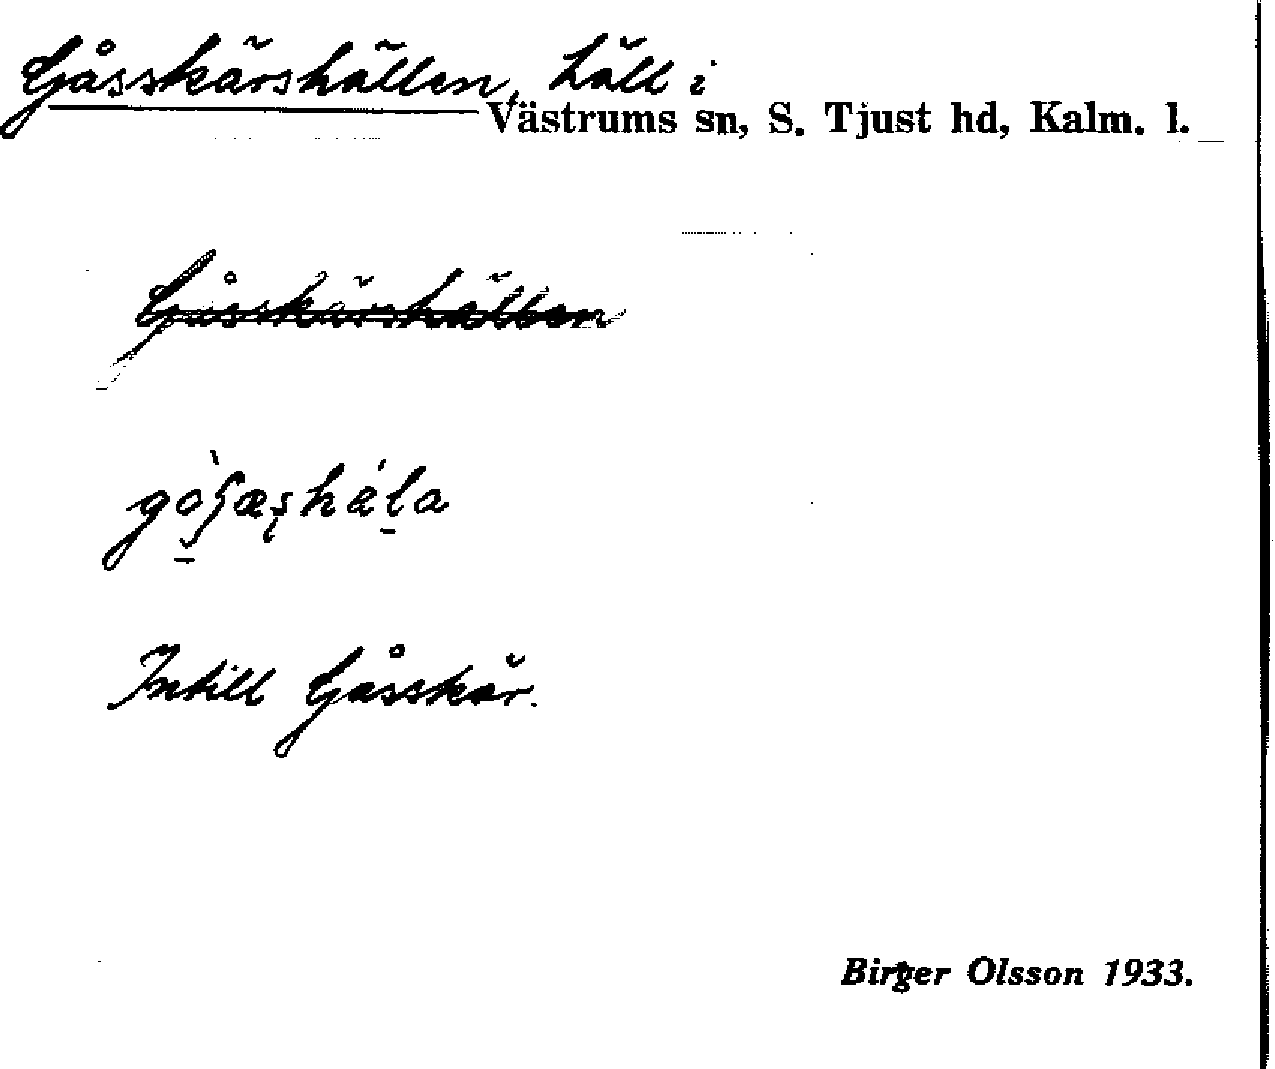 Gåsskärshällen, häll i
Västrums sn, S. Tjust hd, Kalm. l.
Gåsskärshällen
Intill Gåsskär.
Birger Olsson 1933.